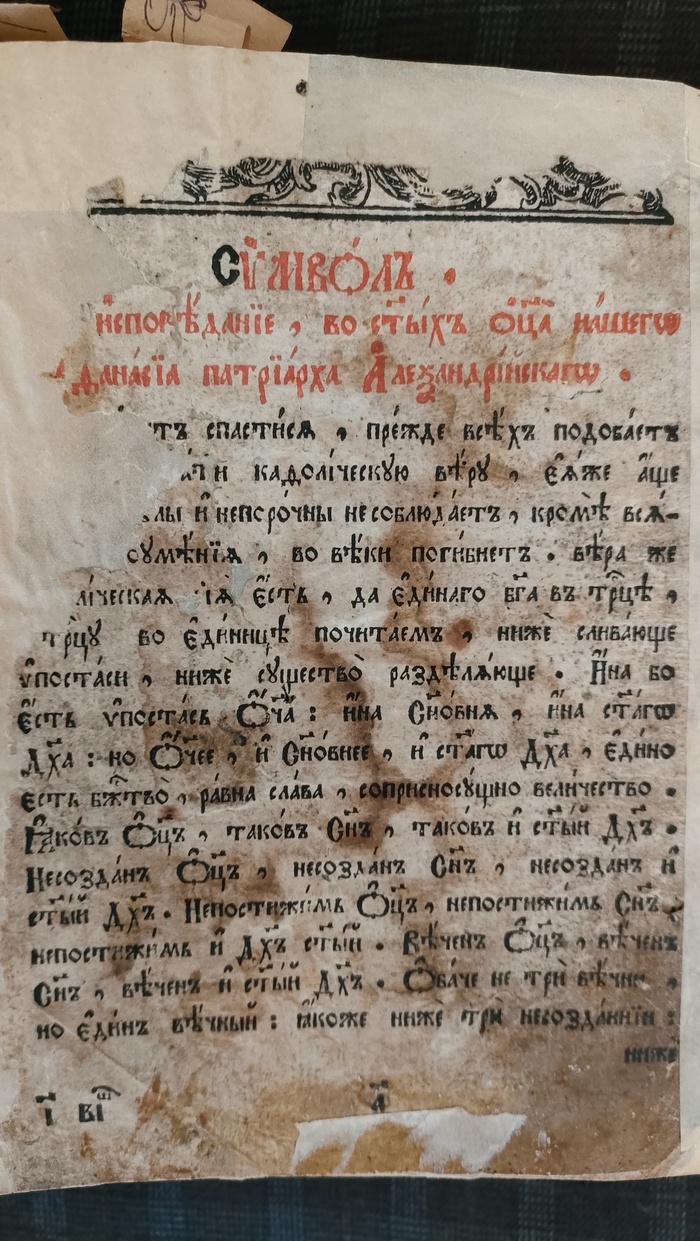 Сѵ́мво́лъ .
и҆сповѣ́данїе , во ст҃ы́хъ ѻ҆ц҃а̀ на́шегѡ
ѳана́сїа патрїа́рха А҆леѯандрі́йскагѡ .
тъ спасти́сѧ , пре́жде всѣ́хъ подоба́етъ
ати каѳолі́ческую вѣ́ру , є҆ѧ́же а҆́ще
лы и҆ непоро́чны не соблюда́етъ , кромѣ̀ всѧ́-
сумнѣ́нїѧ , во вѣ́ки поги́бнетъ . вѣ́ра же
лі́ческаѧ сїѧ̀ є҆́сть , да є҆ди́наго бг҃а въ трⷪ҇цѣ ,
трⷪ҇цу во є҆ди́ницѣ почита́емъ , нижѐ слива́юще
ѵ҆поста́си , нижѐ существо̀ раздѣлѧ́юще . И҆́на бо
є҆́сть ѵ҆поста́сь Ѻ҆́ч҃а : и҆́на Сн҃о́внѧ , и҆́на ст҃а́гѡ
Дх҃а : но Ѻ҆́ч҃ее , и҆ Сн҃о́внее , и҆ ст҃а́гѡ Дх҃а , є҆ди́но
є҆сть бж҃тво̀ , ра́вна сла́ва , соприсносу́щно вели́чество .
Ꙗ҆ко́въ Ѻ҆ц҃ъ , тако́въ Сн҃ъ , тако́въ и҆ ст҃ы́й Дх҃ъ .
Несозда́нъ Ѻ҆ц҃ъ , несозда́нъ Сн҃ъ , несозда́нъ и҆
ст҃ы́й Дх҃ъ . Непостижи́мь Ѻ҆ц҃ъ , непостижи́мь Сн҃ъ ,
непостижи́мь и҆ Дх҃ъ ст҃ы́й . Вѣ́ченъ Ѻ҆ц҃ъ , вѣ́ченъ
Сн҃ъ , вѣ́ченъ и҆ ст҃ы́й Дх҃ъ . Ѻ҆ба́че не трѝ вѣ́чни ,
но є҆ди́нъ вѣ́чный : ꙗ҆́коже нижѐ трѝ несозда́ннїи :
нижѐ
а҃